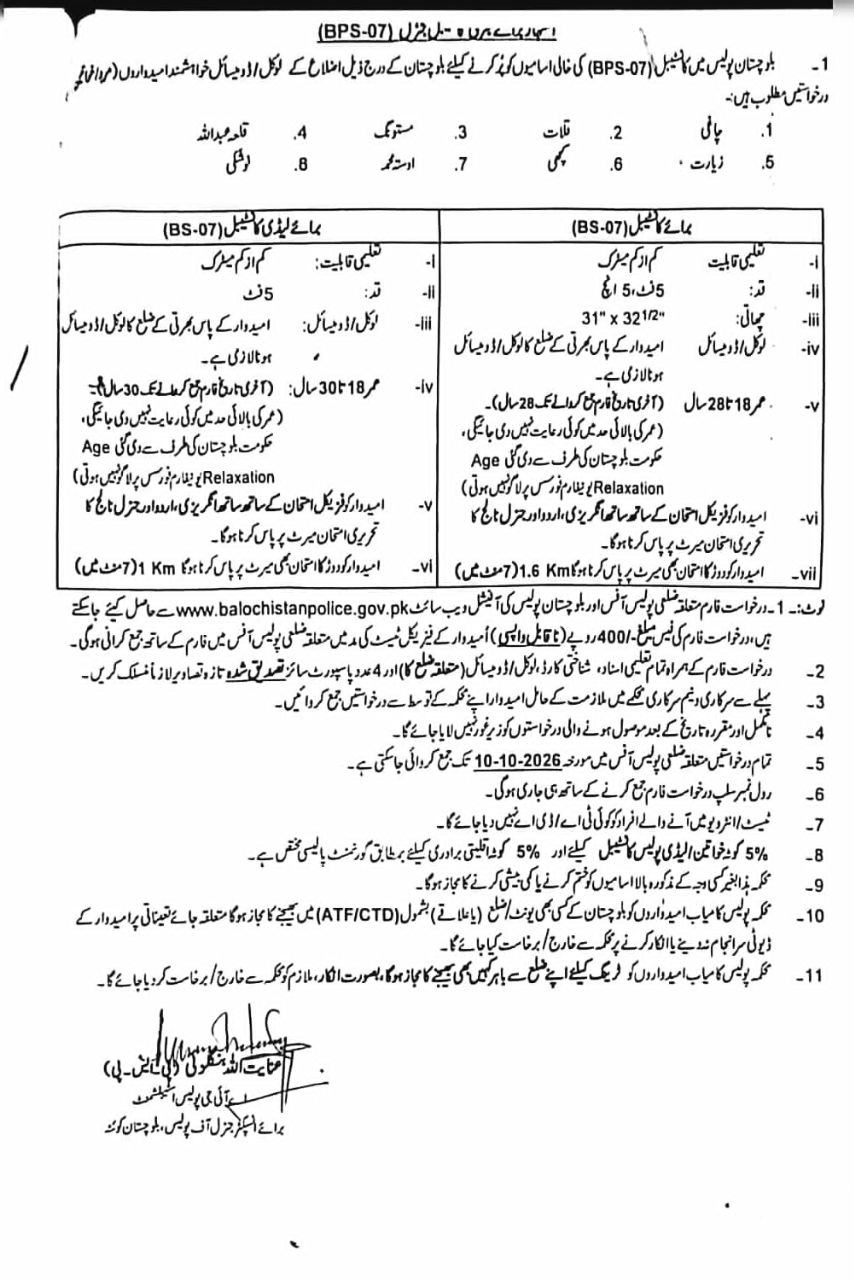 (BPS-07)
1- بلوچستان پولیس میں کانسٹیبل (BPS-07) کی خالی اسامیوں کو پُر کرنے کیلئے بلوچستان کے درج ذیل اضلاع کے لوکل/ڈومیسائل خواہشمند امیدواروں
درخواستیں مطلوب ہیں:-
1. چاغی 2. قلات 3. مستونگ 4. قلعہ عبداللہ
5. زیارت 6. کچھی 7. اوستہ محمد 8. نوشکی
برائے کانسٹیبل (BS-07)
i- تعلیمی قابلیت کم از کم میٹرک
ii- قد: 5 فٹ، 5 انچ
iii- چھاتی: 31" x 32 1/2"
iv- لوکل/ڈومیسائل امیدوار کے پاس بھرتی کے ضلع کا لوکل/ڈومیسائل
ہونا لازی ہے۔
v- عمر 18 تا 28 سال (آخری تاریخ فارم جمع کروانے تک 28 سال)۔
(عمر کی بالائی حد میں کوئی رعایت نہیں دی جائیگی،
حکومت بلوچستان کی طرف سے دی گئی Age
Relaxation یونیفارم فورس پر لاگو نہیں ہوتی)
vi- امیدوار کو فزیکل امتحان کے ساتھ ساتھ انگریزی، اردو اور جنرل نالج کا
تحریری امتحان میرٹ پر پاس کرنا ہوگا۔
vii- امیدوار کو دوڑ کا امتحان بھی میرٹ پر پاس کرنا ہوگا 1.6 Km (7 منٹ میں)
برائے لیڈی کانسٹیبل (BS-07)
i- تعلیمی قابلیت: کم از کم میٹرک
ii- قد: 5 فٹ
iii- لوکل/ڈومیسائل: امیدوار کے پاس بھرتی کے ضلع کا لوکل/ڈومیسائل
ہونا لازی ہے۔
iv- عمر 18 تا 30 سال: (آخری تاریخ فارم جمع کروانے تک 30 سال)۔
(عمر کی بالائی حد میں کوئی رعایت نہیں دی جائیگی،
حکومت بلوچستان کی طرف سے دی گئی Age
Relaxation یونیفارم فورس پر لاگو نہیں ہوتی)
v- امیدوار کو فزیکل امتحان کے ساتھ ساتھ انگریزی، اردو اور جنرل نالج کا
تحریری امتحان میرٹ پر پاس کرنا ہوگا۔
vi- امیدوار کو دوڑ کا امتحان بھی میرٹ پر پاس کرنا ہوگا 1 Km (7 منٹ میں)
نوٹ:- 1- درخواست فارم متعلقہ ضلعی پولیس آفس اور بلوچستان پولیس کی آفیشل ویب سائٹ www.balochistanpolice.gov.pk سے حاصل کیئے جاسکتے
ہیں، درخواست فارم کی فیس مبلغ -/400 روپے (ناقابل واپسی) امیدوار کے فیزیکل ٹیسٹ کی مد میں متعلقہ ضلعی پولیس آفس میں فارم کے ساتھ جمع کرانی ہوگی۔
2- درخواست فارم کے ہمراہ تمام تعلیمی اسناد، شناختی کارڈ، لوکل/ڈومیسائل (متعلقہ ضلع کا) اور 4 عدد پاسپورٹ سائز تصدیق شدہ تازہ تصاویر لازماً منسلک کریں۔
3- پہلے سے سرکاری و نیم سرکاری محکمے میں ملازمت کے حامل امیدوار اپنے محکمہ کے توسط سے درخواستیں جمع کروائیں۔
4- نامکمل اور مقررہ تاریخ کے بعد موصول ہونے والی درخواستوں کو زیر غور نہیں لایا جائے گا۔
5- تمام درخواستیں متعلقہ ضلعی پولیس آفس میں مورخہ 10-10-2026 تک جمع کروائی جاسکتی ہے۔
6- رول نمبر سلپ درخواست فارم جمع کرنے کے ساتھ ہی جاری ہوگی۔
7- ٹیسٹ/انٹرویو میں آنے والے افراد کو کوئی ٹی اے/ڈی اے نہیں دیا جائے گا۔
8- 5% کوٹہ خواتین/لیڈی پولیس کانسٹیبل کیلئے اور 5% کوٹہ اقلیتی برادری کیلئے بمطابق گورنمنٹ پالیسی مختص ہے۔
9- محکمہ ہذا بغیر کسی وجہ کے مذکورہ بالا اسامیوں کو ختم کرنے یا کمی بیشی کرنے کا مجاز ہوگا۔
10- محکمہ پولیس کامیاب امیدواروں کو بلوچستان کے کسی بھی یونٹ/ضلع (یا علاقے) بشمول (ATF/CTD) میں بھیجنے کا مجاز ہوگا متعلقہ جائے تعیناتی پر امیدوار کے
ڈیوٹی سرانجام نہ دینے یا انکار کرنے پر محکمہ سے خارج/برخاست کیا جائے گا۔
11- محکمہ پولیس کامیاب امیدواروں کو ٹریننگ کیلئے اپنے ضلع سے باہر کہیں بھی بھیجنے کا مجاز ہوگا، بصورت انکار، ملازم کو محکمہ سے خارج/برخاست کر دیا جائے گا۔
عنایت اللہ بنگلزئی (پی ایس۔پی)
اے آئی جی پولیس اسٹیبلشمنٹ
برائے انسپکٹر جنرل آف پولیس، بلوچستان کوئٹہ